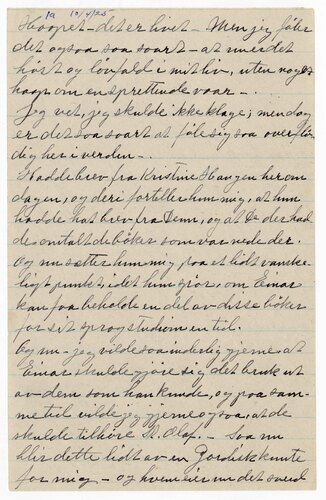 1a 10/4/25
Hoopet – det er livet – Men jeg føler
det ogsaa saa svart – at nu er det
høst og løvfald i mit liv, uten noget
haap om en sprettende vaar –.
Jeg vet, jeg skulde ikke klage; men dog
er det saa svart at føle sig saa overflø-
dig her i verden –.
Hadde brev fra Kristine Haugen her om
dagen, og deri fortæller hun mig, at hun
hadde hat brev fra Dem, og at De der had-
de omtalt de bøker som var nede der.
Og nu sætter hun mig paa et lidt vanske-
ligt punkt, idet hun spør, om Einar
kan faa beholde en del av disse bøker
for sit sprogstudium en tid.
Og nu – jeg vilde saa inderlig gjerne, at
Einar skulde gjøre sig det bruk ut
av dem som han kunde, og paa sam-
me tid vilde jeg jo gjerne ogsaa, at de
skulde tilhøre St. Olaf. – Saa nu
blir dette lidt av en Gordisk knute
for mig – og hvem eier nu det sverd